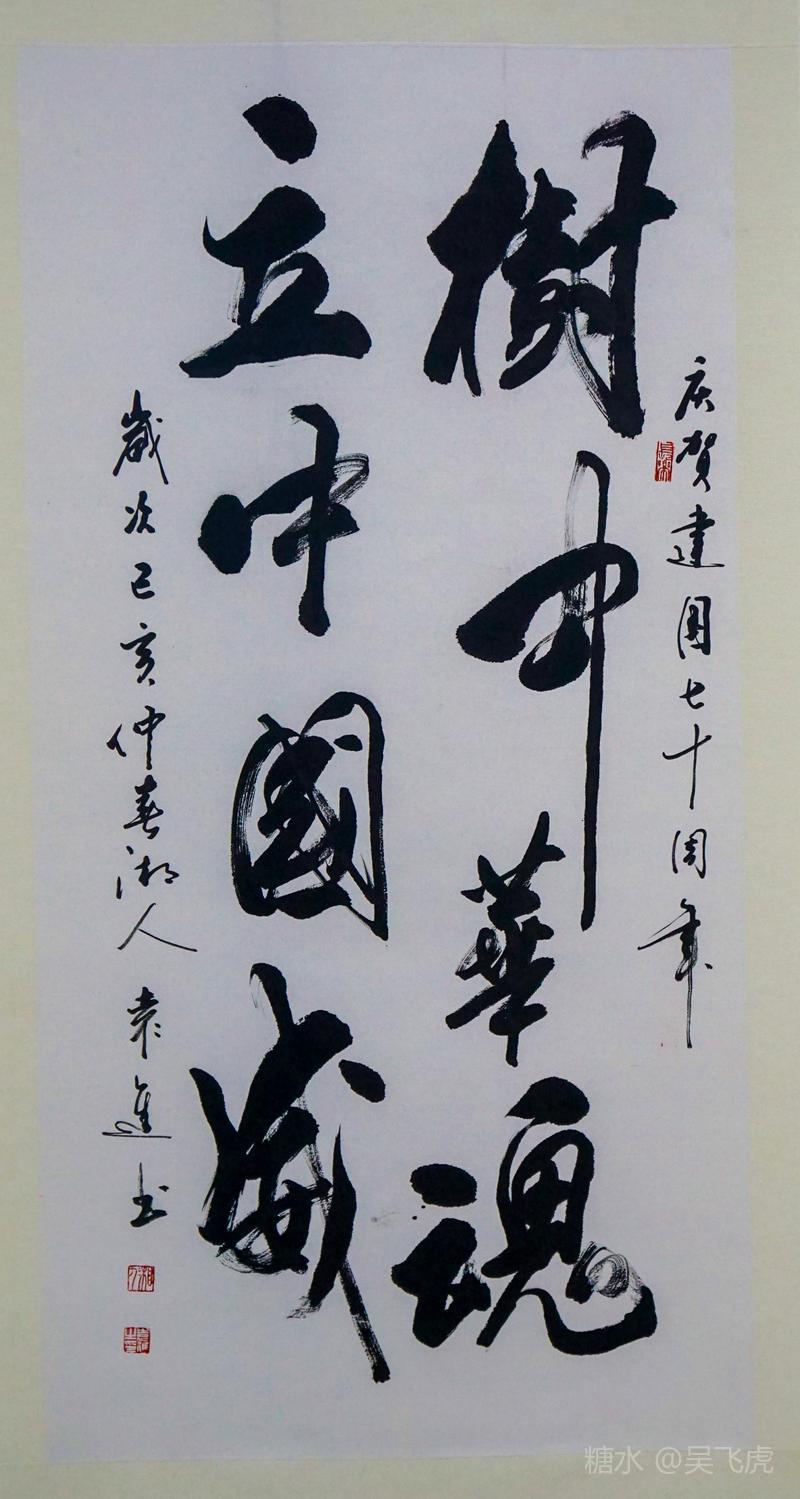 庆贺建国七十周年
樹中華魂
立中國威
歲次己亥仲春湘人袁進书
糖水 @吴飞虎